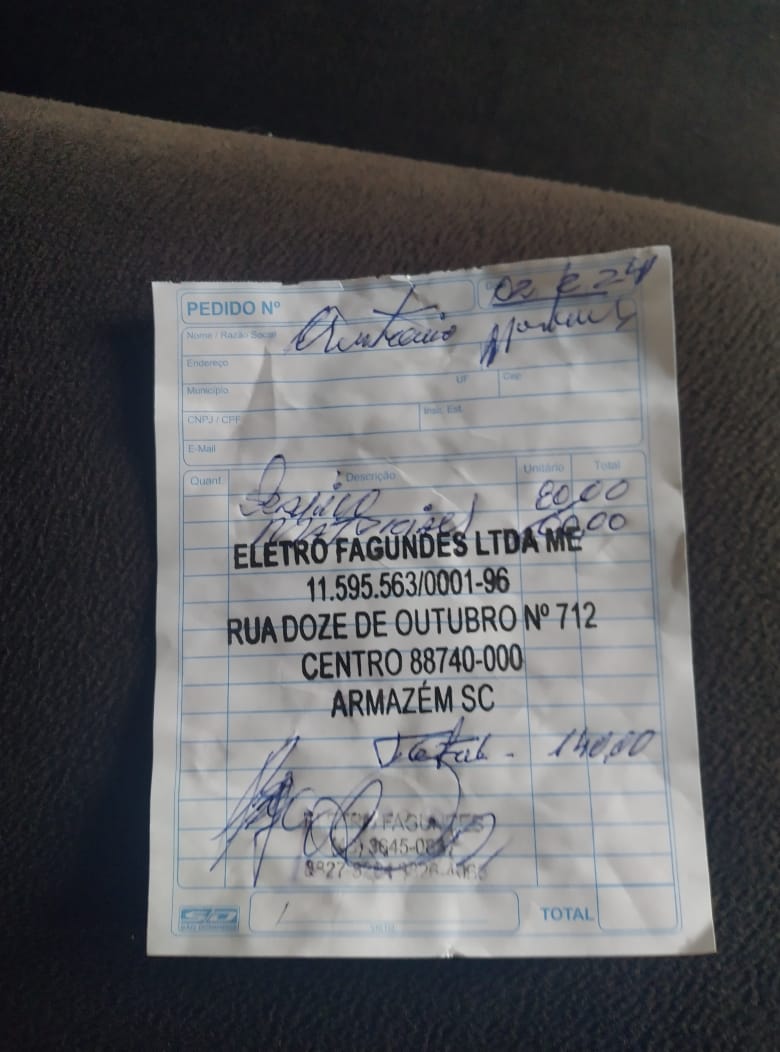 PEDIDO Nº
02 2 24
Nome / Razão Social Antonio
Endereço
Município UF Cep
CNPJ / CPF Insc. Est.
E-Mail
Quant. Descrição Unitário Total
Serviço 80,00
Materiais 60,00
ELETRO FAGUNDES LTDA ME
11.595.563/0001-96
RUA DOZE DE OUTUBRO Nº 712
CENTRO 88740-000
ARMAZÉM SC
Total - 140,00
ELETRO FAGUNDES
SD
SÃO DOMINGOS
VISTO
TOTAL